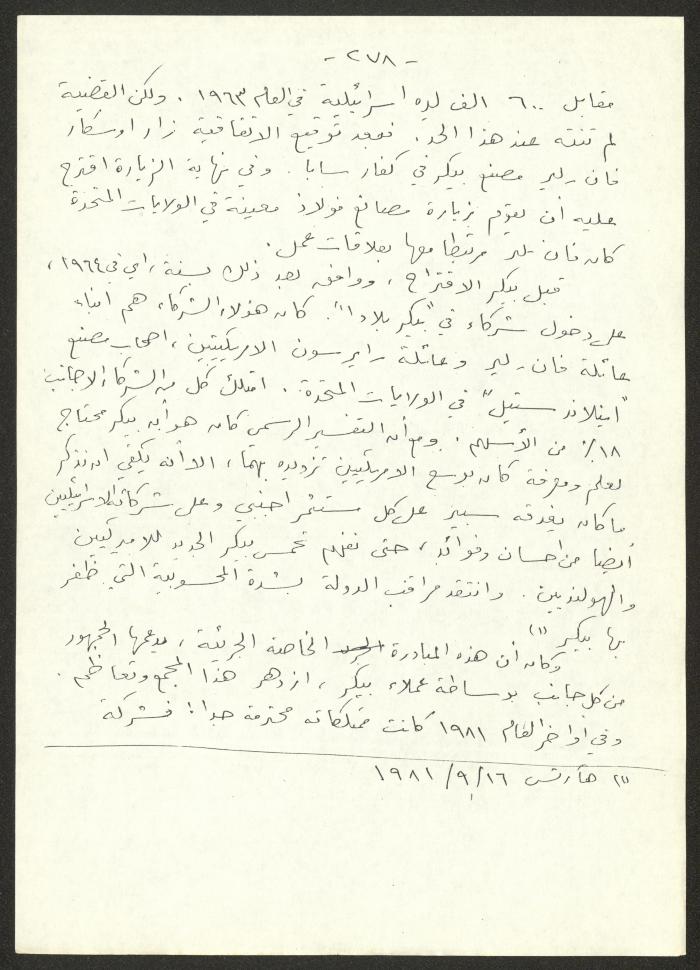 - ٢٧٨ -
مقابل ٦٠٠ الف ليره اسرائيلية في العام ١٩٦٣. ولكن القضية
لم تنته عند هذا الحد. فبعد توقيع الاتفاقية زار اوسكار
فان - لير مصنع بيكر في كفار سابا. وفي نهاية الزيارة اقترح
عليه أن يقوم بزيارة مصانع فولاذ معينة في الولايات المتحدة
كان فان - لير مرتبطا معها بعلاقات عمل.
قبل بيكر الاقتراح، ووافق بعد ذلك بسنة، اي في ١٩٦٤،
على دخول شركاء في "بيكر بلادا". كان هؤلاء الشركاء هم ابناء
عائلة فان - لير وعائلة رايرسون الامريكيتين، اصحاب مصنع
"اينلاند ستيل" في الولايات المتحدة. امتلك كل من الشركاء الاجانب
١٨٪ من الأسهم. ومع أن التفسير الرسمي كان هو أن بيكر محتاج
لعلم ومعرفة كان بوسع الامريكيين تزويده بهما، الا أنه يكفي ان نتذكر
ما كان يغدقه سبير على كل مستثمر اجنبي وعلى شركائه الاسرائيليين
أيضا من احسان وفوائد، حتى نفهم تحمس بيكر الجديد للامريكيين
والهولنديين. وانتقد مراقب الدولة بشدة المحسوبية التي ظفر
بها بيكر (١)
وكان أن هذه المبادرة الخاصة الجريئة، يدعمها الجمهور
من كل جانب بوساطة عملاء بيكر، ازدهر هذا المجمع وتعاظم.
وفي أواخر العام ١٩٨١ كانت ممتلكاته محترمة جدا: فشركة
(١) هآرتس ١٦/٩/١٩٨١